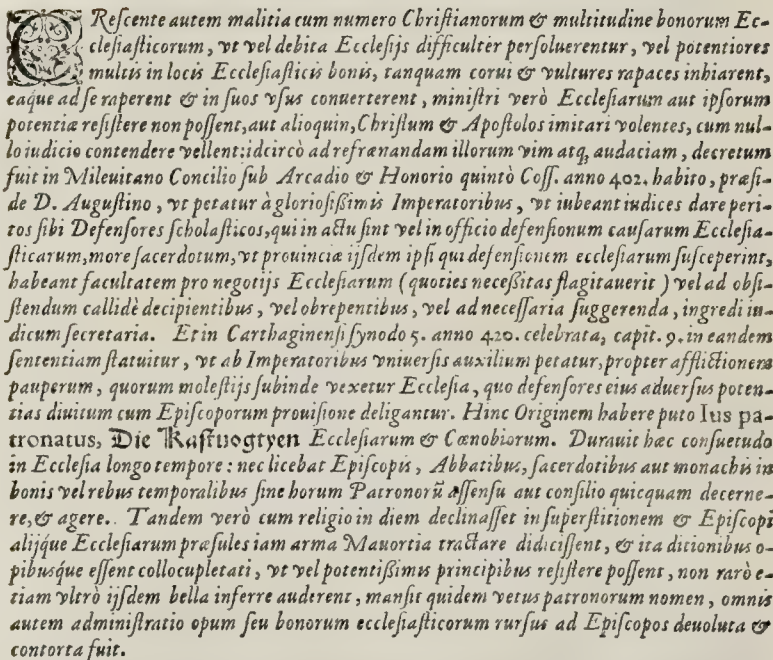 CRescente autem malitia cum numero Christianorum & multitudine bonorum Ec-
clesiasticorum, vt vel debita Ecclesijs difficulter persoluerentur, vel potentiores
multis in locis Ecclesiasticis bonis, tanquam corui & vultures rapaces inhiarent,
eaque ad se raperent & in suos vsus conuerterent, ministri verò Ecclesiarum aut ipsorum
potentiæ resistere non possent, aut alioquin, Christum & Apostolos imitari volentes, cum nul-
lo iudicio contendere vellent: idcircò ad refrænandam illorum vim atq; audaciam, decretum
fuit in Mileuitano Concilio sub Arcadio & Honorio quintò Coss. anno 402. habito, præsi-
de D. Augustino, vt petatur à gloriosißimis Imperatoribus, vt iubeant iudices dare peri-
tos sibi Defensores scholasticos, qui in actu sint vel in officio defensionum causarum Ecclesia-
sticarum, more sacerdotum, vt prouinciæ ijsdem ipsi qui defensionem ecclesiarum susceperint,
habeant facultatem pro negotijs Ecclesiarum (quoties neceßitas flagitauerit) vel ad obsi-
stendum callidè decipientibus, vel obrepentibus, vel ad necessaria suggerenda, ingredi iu-
dicum secretaria. Et in Carthaginensi synodo 5. anno 420. celebrata, capit. 9. in eandem
sententiam statuitur, vt ab Imperatoribus vniuersis auxilium petatur, propter afflictionem
pauperum, quorum molestijs subinde vexetur Ecclesia, quo defensores eius aduersus poten-
tias diuitum cum Episcoporum prouisione deligantur. Hinc Originem habere puto Ius pa-
tronatus, Die Kastuogtyen Ecclesiarum & Cœnobiorum. Durauit hæc consuetudo
in Ecclesia longo tempore: nec licebat Episcopis, Abbatibus, sacerdotibus aut monachis in
bonis vel rebus temporalibus sine horum Patronorũ assensu aut consilio quicquam decerne-
re, & agere. Tandem verò cum religio in diem declinasset in superstitionem & Episcopi
alijque Ecclesiarum præsules iam arma Mauortia tractare didicissent, & ita ditionibus o-
pibusque essent collocupletati, vt vel potentißimis principibus resistere possent, non rarò e-
tiam vltrò ijsdem bella inferre auderent, mansit quidem vetus patronorum nomen, omnis
autem administratio opum seu bonorum ecclesiasticorum rursus ad Episcopos deuoluta &
contorta fuit.